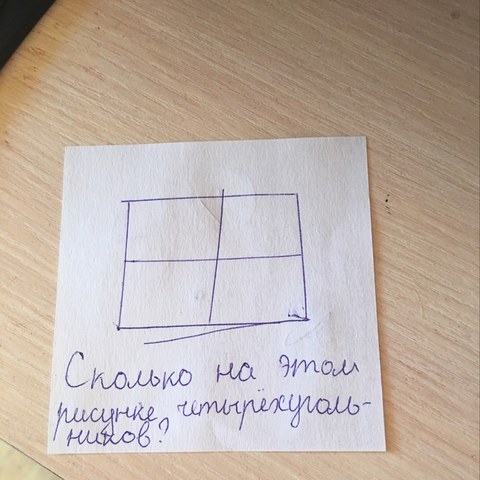 Сколько на этом
рисунке четырёхуголь-
ников?